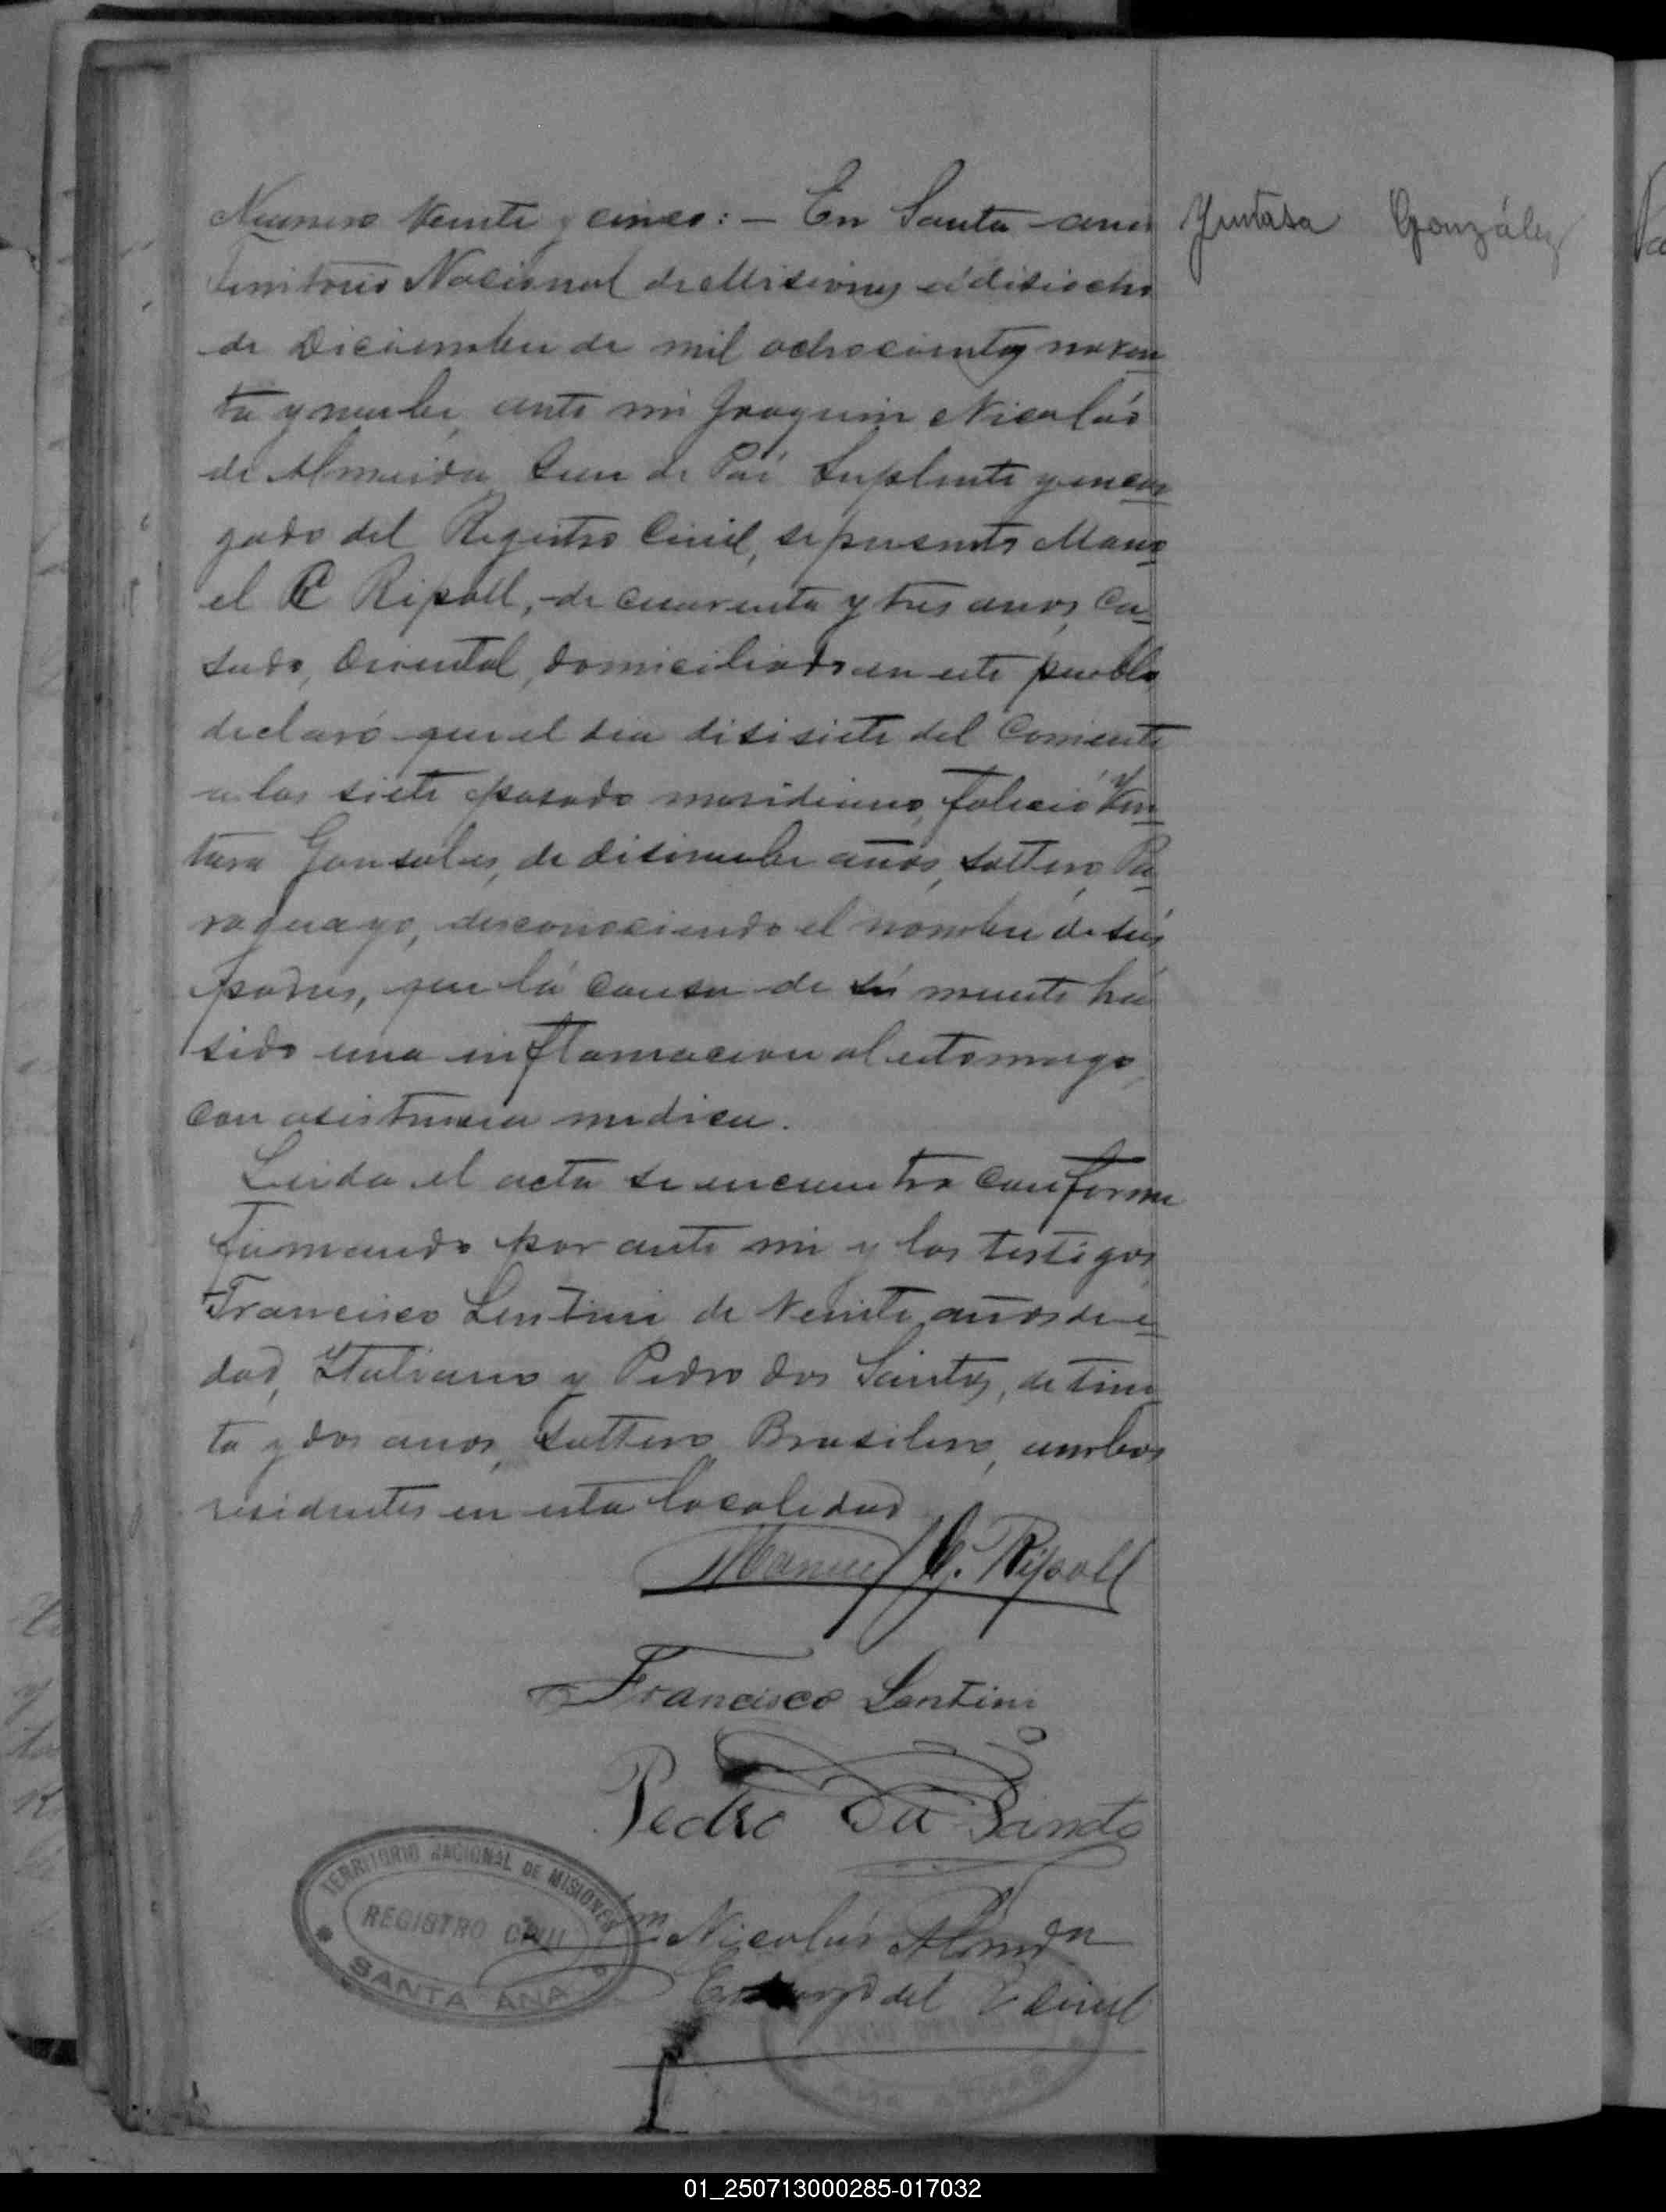 Numero Veinte y cinco: — En Santa-ana
Territorio Nacional de Misiones á disiocho
de Diciembre de mil ochocientos noven
ta y nuebe, ante mi Joaquin Nicolás
de Almeida Jues de Paz Suplente y encar
gado del Registro Civil, se presento Manu
el C Ripoll, de cuarenta y tres anos, Ca
sado, Oriental, domiciliado en este pueblo
declaró que el dia disisiete del Corriente
a las siete pasado meridiano, falició Ven
tura Gonsales, de disinuebe años, soltero, Pa
raguayo, desconociendo el nombre de sus
padres, que lá causa de sú muerte há
sido una inflamacion al estomago,
con asistencia medica.
Leida el acta se encuentra conforme
firmando por ante mi y los testigos
Francisco Lentini de Veinte años de e
dad, Italiano y Pedro dos Santos, de trein
ta y dos anos, Soltero Brasilero, ambos
residentes en esta localidad
Manuel C. Ripoll
Francisco Lentini
Pedro Da Santo
Nicolás Almeida
Encargado del R Civil
González
TERRITORIO NACIONAL DE MISIONES
REGISTRO CIVIL
SANTA ANA
01_250713000285-017032